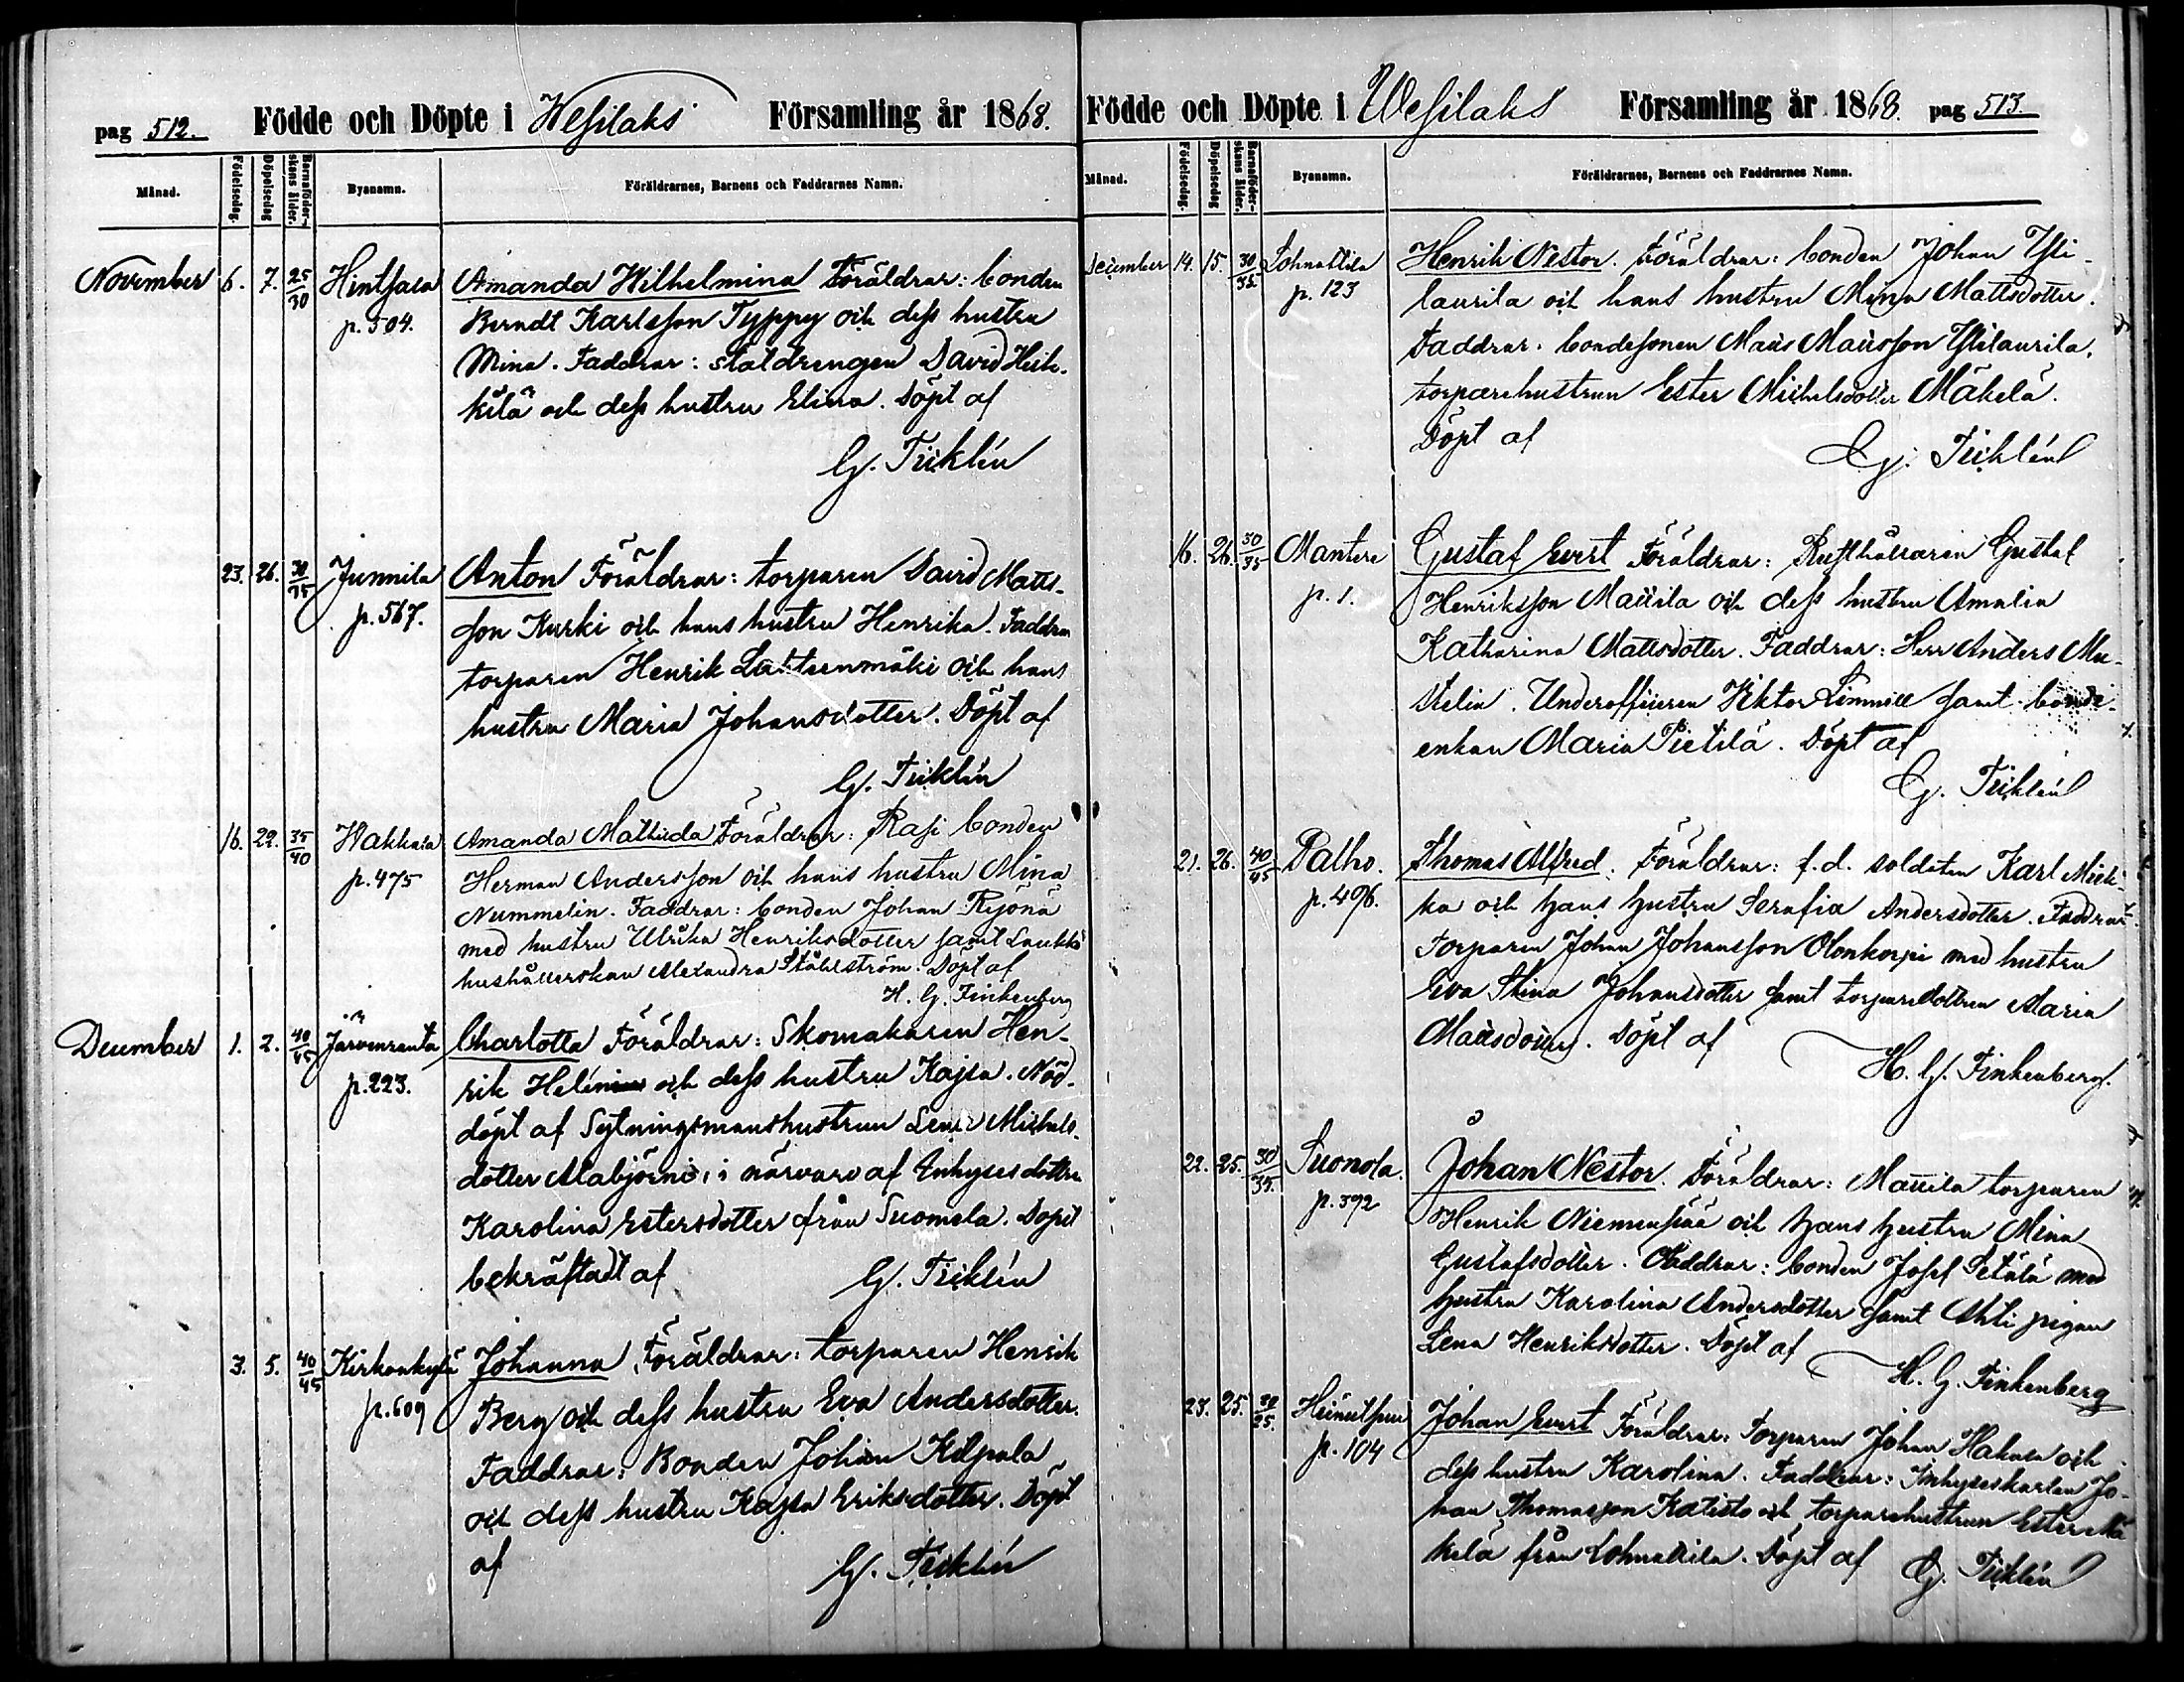 pag 512. Födde och Döpte i Wesilaks Församling år 1868.
Månad. Födelsedag. Döpelsedag Barnaföder-skans ålder. Byanamn. Föräldrarnes, Barnens och Faddrarnes Namn.
November 6. 7. 25/30 Hintsala p. 504.
Amanda Wilhelmina Föräldrar: bonden
Berndt Karlsson Typpy och dess hustru
Mina. Faddrar: staldrengen David Heik-
kilä och dess hustru Elina. Döpt af
G. Triklén
23. 26. 30/35 Junnila p. 567.
Anton Föräldrar: torparen David Matts-
son Kurki och hans hustru Henrika. Faddrar
torparen Henrik och hans
hustru Maria Johansdotter. Döpt af
G. Triklén
16. 22. 35/40 Wakkala p. 475
Amanda Mathilda Föräldrar: Rasi bonden
Herman Andersson och hans hustru Mina
Nummelin. Faddrar: bonden Johan
med hustru Ulrika Henriksdotter samt Laukko
hushållerskan Alexandra Ståhlström. Döpt af
H. G. Finkenberg
December 1. 2. 40/45 Järvenranta p. 223.
Charlotta Föräldrar: Skomakaren Hen-
rik Helénius och dess hustru Kajsa. Nöd-
döpt af Sytningsmanshustrun Lena Michels-
dotter i närvaro af Inhysesdottren
Karolina Estersdotter från Suomela. Dopet
bekräftadt af G. Triklén
3. 5. 40/45 Kirkonkylä p. 609
Johanna Föräldrar: torparen Henrik
Berg och dess hustru Eva Andersdotter.
Faddrar: Bonden Johan Kilpala
och dess hustru Kajsa Eriksdotter. Döpt
af G. Triklén
Födde och Döpte i Wesilaks Församling år 1868. pag 513.
Månad. Födelsedag. Döpelsedag Barnaföder-skans ålder. Byanamn. Föräldrarnes, Barnens och Faddrarnes Namn.
December 14. 15. 30/35 Tohnattila p. 123
Henrik Nestor. Föräldrar: bonden Johan Yli-
laurila och hans hustru Mina Mattsdotter.
Faddrar: bondesonen Matts Mattsson Ylilaurila,
torparehustrun Ester Michelsdotter Mäkelä.
Döpt af
G. Triklén
16. 26. 30/35 Mantere p. 1.
Gustaf Evert Föräldrar: Rusthållaren Gustaf
Henriksson Mattila och dess hustru Amalia
Katharina Mattsdotter. Faddrar: Herr Anders Mu-
stelin. Underofficeren Viktor samt bonde-
enkan Maria Pietilä. Döpt af
G. Triklén
21. 26. 40/45 Palho. p. 496.
Thomas Alfred. Föräldrar: f.d. soldaten Karl
ka och hans hustru Serafia Andersdotter. Faddrar:
Torparen Johan Johansson Olonkorpi med hustru
Eva Stina Johansdotter samt torparedottren Maria
Mattsdotter. Döpt af
H. G. Finkenberg.
22. 25. 30/35. Suonola. p. 392
Johan Nestor. Föräldrar: Mattila torparen
Henrik Niemenpää och hans hustru Mina
Gustafsdotter. Faddrar: bonden Josef Setälä med
hustru Karolina Andersdotter samt Ahti pigan
Lena Henriksdotter. Döpt af
H. G. Finkenberg
23. 25. p. 104
Johan Evert Föräldrar: Torparen Johan Hakala och
dess hustru Karolina. Faddrar: Inhyseskarlen Jo-
han Thomasson Katisto och torparehustrun Ester Mä-
kelä från Tohnattila. Döpt af G. Triklén